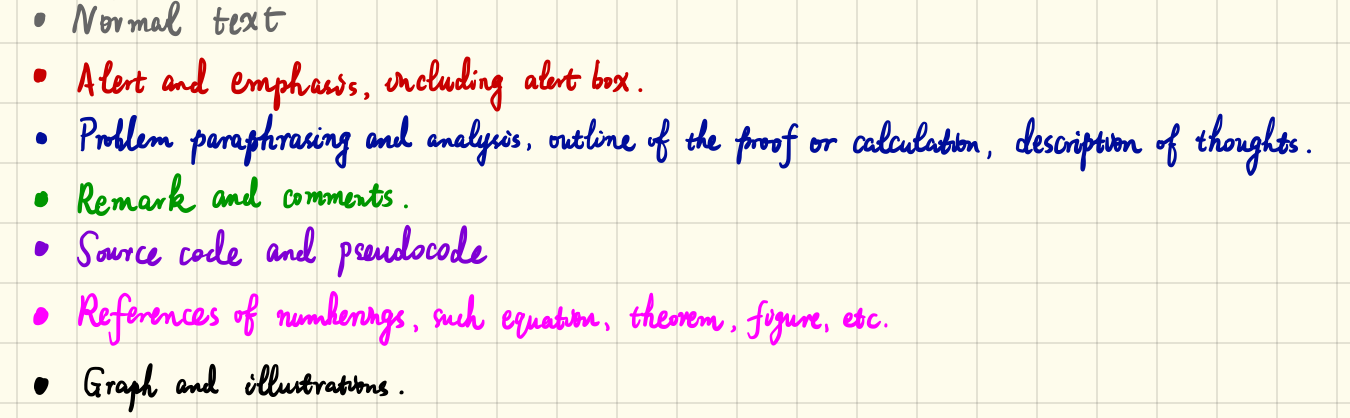 • Normal text
• Alert and emphasis, including alert box.
• Problem paraphrasing and analysis, outline of the proof or calculation, description of thoughts.
• Remark and comments.
• Source code and pseudocode
• References of numberings, such equation, theorem, figure, etc.
• Graph and illustrations.